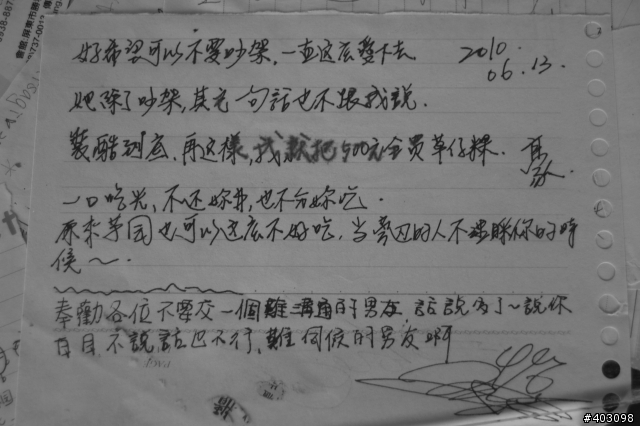 好希望可以不要吵架,一直这庅墪下去 2010.
06.13.
她除了吵架,其它一句話也不跟我說.
裝酷到底.再这樣,我就把500元全買草仔粿.
一口吃光,不还妳錢,也不分妳吃.
原來草囝也可以这庅不好吃,当旁边的人不想睬你的時
候~.
奉勸各位不要交一個難溝通的男友 話說多了~說你
盲目 不說話也不行,難伺候的男友啊
#403098